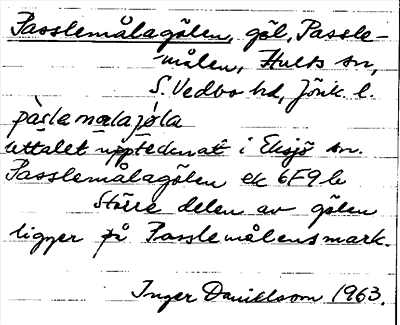 Passlemålagölen, göl, Passle-
målen, Hults sn,
S. Vedbo hd, Jönk. l.
pàslamɷlajø̀la
uttalet upptecknat i Eksjö sn.
Passlemålagölen ek 6F9b
Större delen av gölen
ligger på Passlemålens mark.
Inger Danielsson 1963.